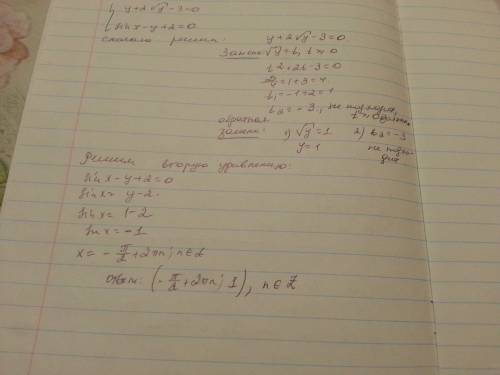 y+2√y-3=0
sin x-y+2=0
сначала решим: y+2√y-3=0
Замена: √y=t, t≥0
t²+2t-3=0
D/4=1+3=4
t₁=-1+2=1
t₂=-3, не подходит,
обратная
замена: 1) √y=1 2) t₂=-3
y=1 не подхо-
дит
Решим второе уравнение:
sin x-y+2=0
sin x= y-2
sin x= 1-2
sin x= -1
x= -π/2+2πn; n∈Z
ответ: (-π/2+2πn; 1), n∈Z